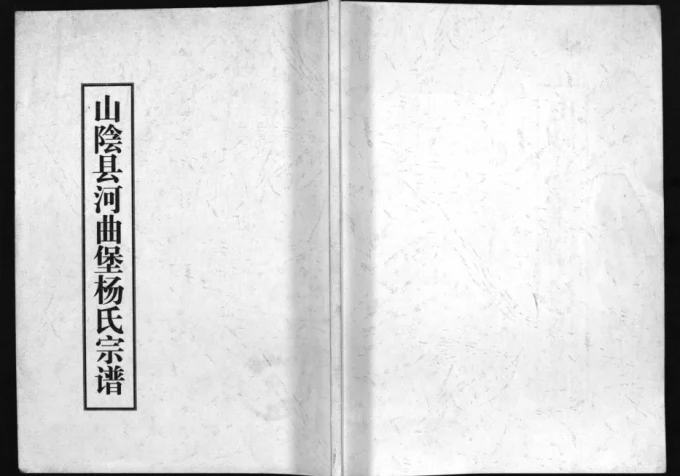 山陰县河曲堡杨氏宗谱